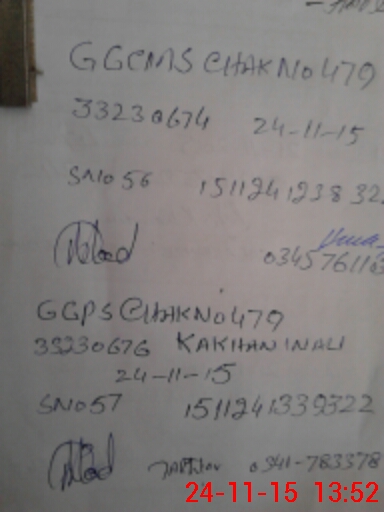 GGCMS CHAK NO 479
33230674 24-11-15
SNO 56 151124123832
0345761163
GGPS CHAK NO 479
33230676 KAKHANINALI
24-11-15
SNO 57 151124133932 2
0341-783378
24-11-15 13:52